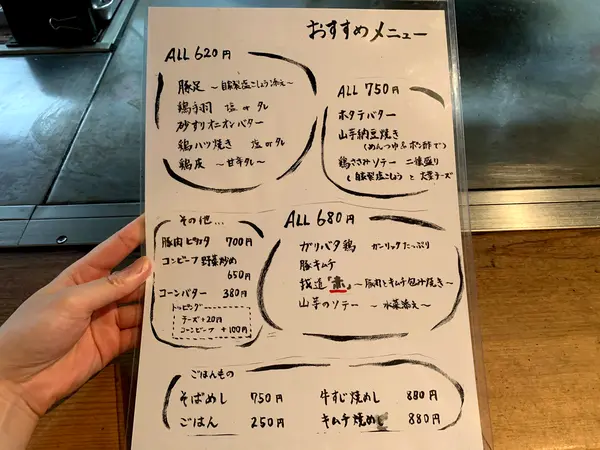 おすすめメニュー
ALL 620円
豚足 ～自家製塩こしょう添え～
鶏手羽 塩 or タレ
砂ずりオニオンバター
鶏ハツ焼き 塩 or タレ
鶏皮 ～甘辛タレ～
ALL 750円
ホタテバター
山芋納豆焼き
(めんつゆ ポン酢で)
鶏ささみソテー 二種盛り
(自家製塩こしょう と 大葉チーズ
その他...
豚肉ピカタ 700円
コンビーフ野菜炒め
650円
コーンバター 380円
トッピング
チーズ+20円
コーンビーフ+100円
ALL 680円
ガリバタ鶏 ガーリックたっぷり
豚キムチ
「赤」 ～豚肉とキムチ包み焼き～
山芋のソテー ～水菜添え～
ごはんもの
そばめし 750円
ごはん 250円
牛すじ焼めし 880円
キムチ焼めし 880円